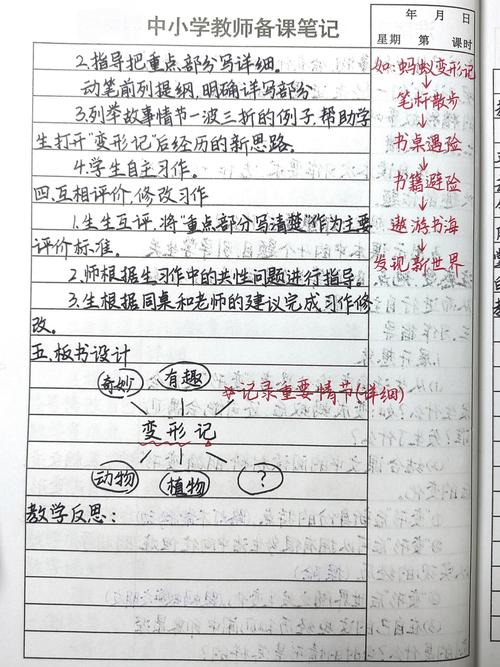 中小学教师备课笔记
年 月 日
星期 第 课时
2.指导把重点部分写详细。
动笔前列提纲,明确详写部分
3.列举故事情节一波三折的例子,帮助学
生打开“变形记”后经历的新思路。
4.学生自主习作。
四.互相评价,修改习作
1.生生互评,将“重点部分写清楚”作为主要
评价标准。
2.师根据生习作中的共性问题进行指导。
3.生根据同桌和老师的建议完成习作修
改。
五.板书设计
奇妙 有趣
记录重要情节(详细)
变形记
动物 植物 ?
教学反思:
如:蚂蚁变形记
笔杆散步
书桌遇险
书籍避险
遨游书海
发现新世界